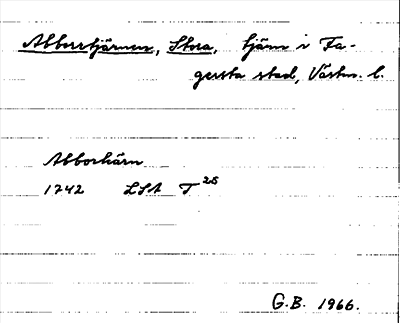 Abborrtjärnen, Stora, tjärn i Fa-
gersta stad, Västm. l.
Abborkärn
1742 LSA T 25
G.B. 1966.